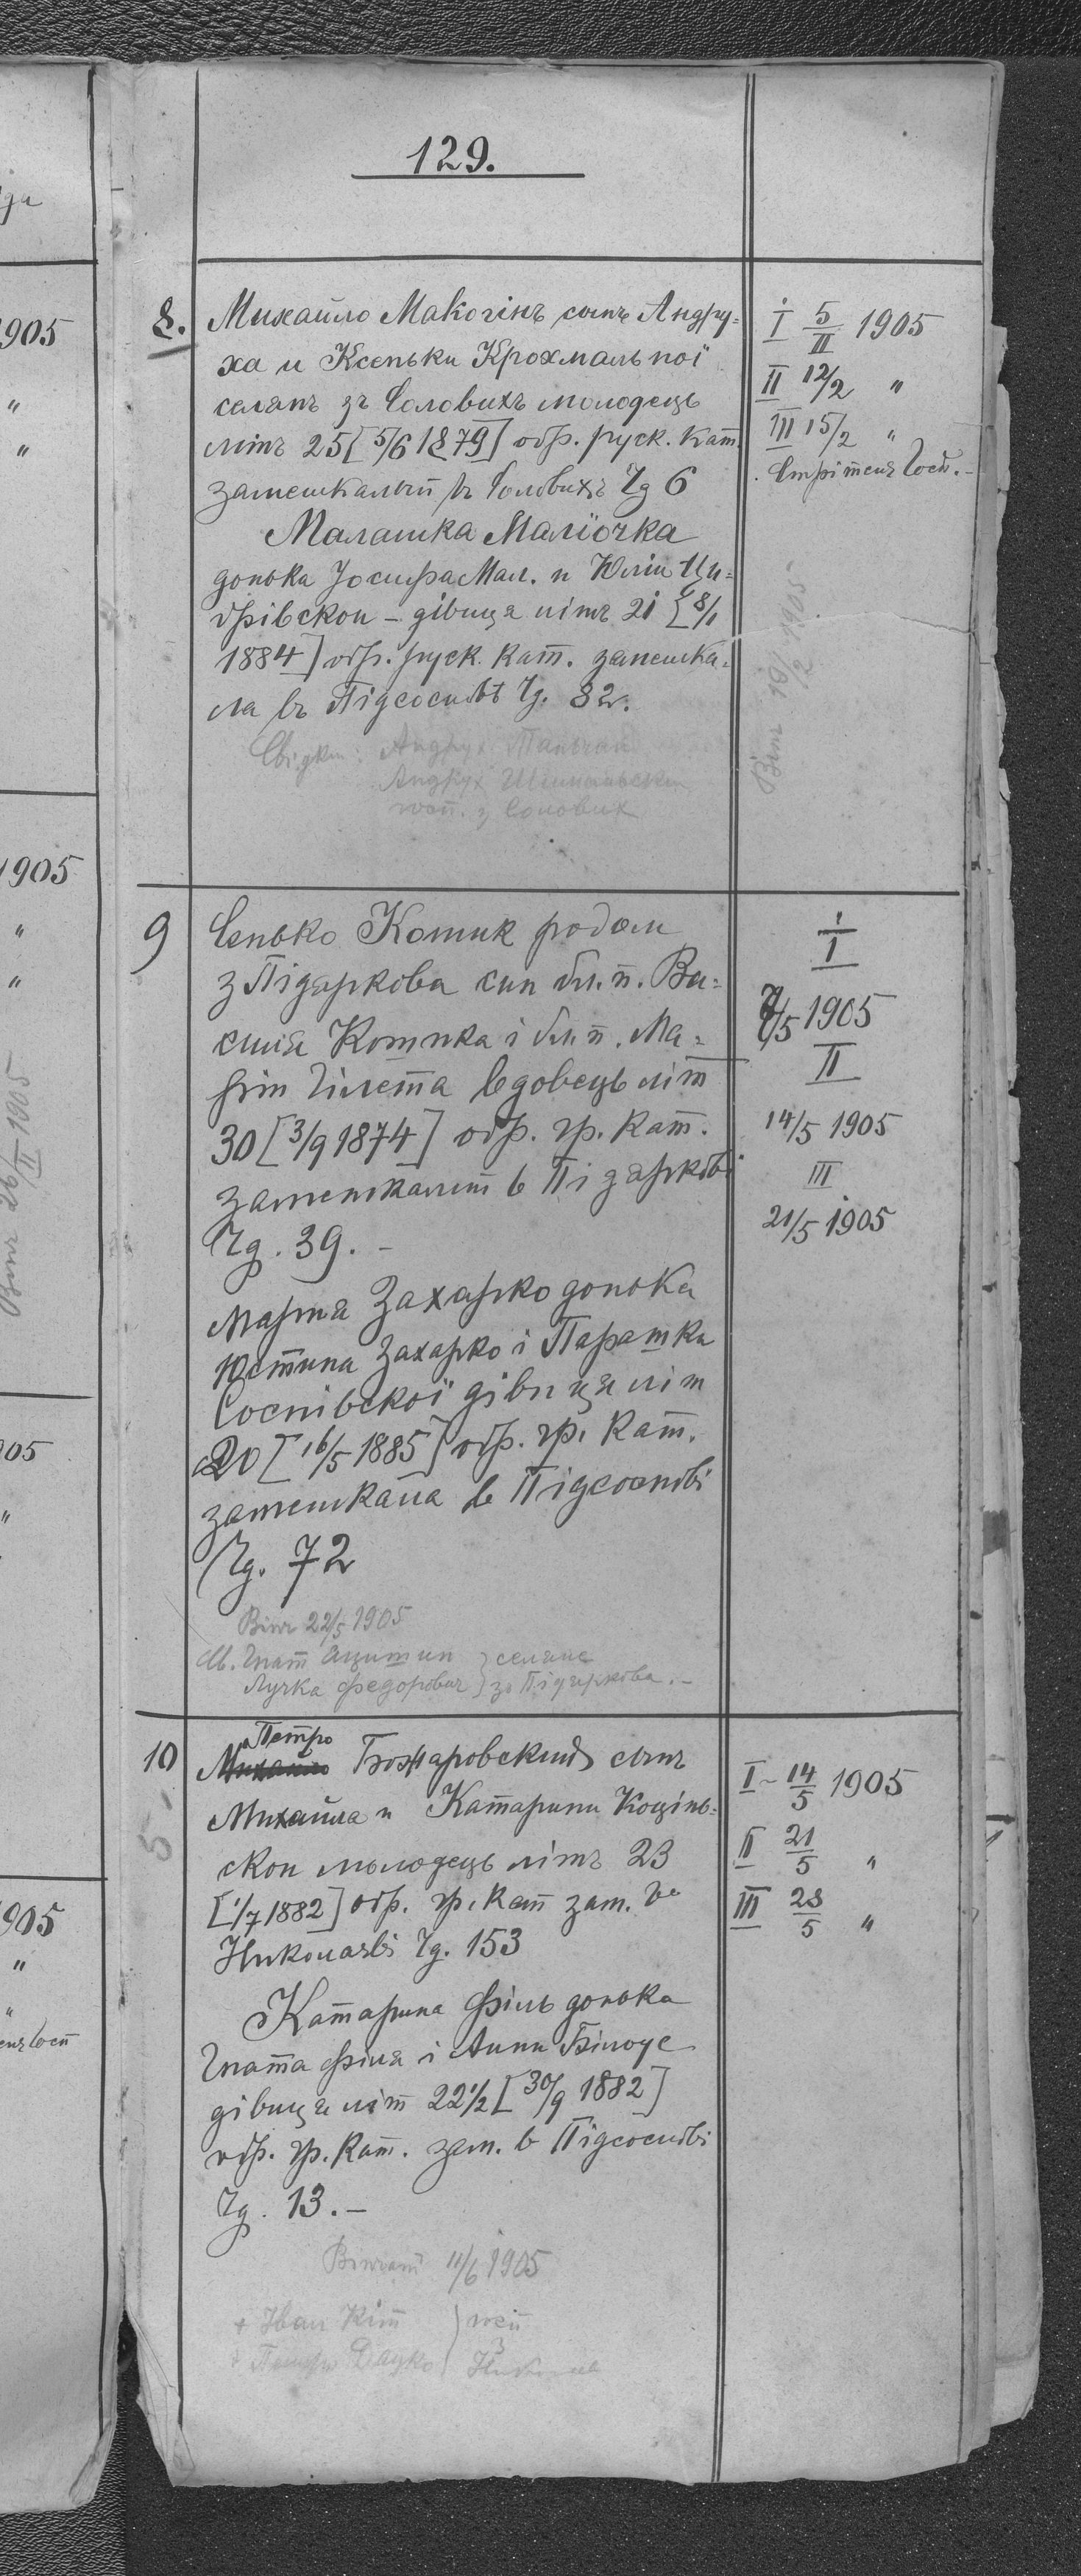 129.
8.
Михайло Макогінъ сынъ Андру=
ха и Ксеньки Крохмальної
селянъ зъ Соловихъ молодець
літъ 25 [5/6 1879] обр. руск. кат.
замешкалый въ Соловихъ Чд 6
Малашка Маліочка
донька Іосифа Мал. и Юлии Ци=
дрівскои – дівиця літъ 21 [8/1
1884] обр. руск. кат. замешка=
ла въ Підсоснівѣ Чд. 32.
Свідки: Андрух
Андрух
госп. з Солових
I 5/II 1905
II 12/2 "
III 15/2 "
Стрітеня Госп. –
Вінч 19/2 1905
9
Сенько Котик родом
з Підяркова син бл. п. Ва=
силя Котика і бл. п. Ма=
риї Гілета вдовець літ
30 [3/9 1874] обр. гр. кат.
замешкалий в Підяркові
Чд. 39. –
Марта Захарко донька
Юстина Захарко і Парашка
Соснівскої дівиця літ
20 [16/5 1885] обр. гр. кат.
замешкала в Підсоснові
Чд. 72
Вінч 22/5 1905
Св. Гнат селяне
Лучка Федорович зъ Підяркова. –
I
7/5 1905
II
14/5 1905
III
21/5 1905
10
Петро
Михайло Божаровский сынъ
Михайла и Катарини Коцінь=
скои молодець літъ 23
[1/7 1882] обр. гр. кат зам. въ
Николаєві Чд. 153
Катарина Філь донька
Гната Філя і Анни Білоус
дівиця літ 22½ [30/9 1882]
обр. гр. кат. зам. в Підсоснові
Чд. 13. –
Вінчані 11/6 1905
+ Іван Кіт госп
+ Дацко з
I – 14/5 1905
II 21/5 "
III 28/5 "